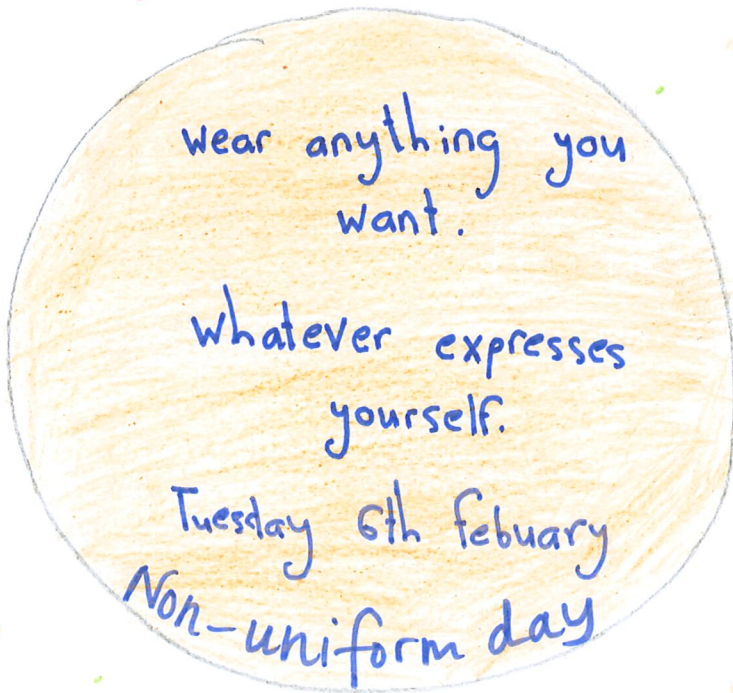 wear anything you
want.
whatever expresses
yourself.
Tuesday 6th febuary
Non-uniform day